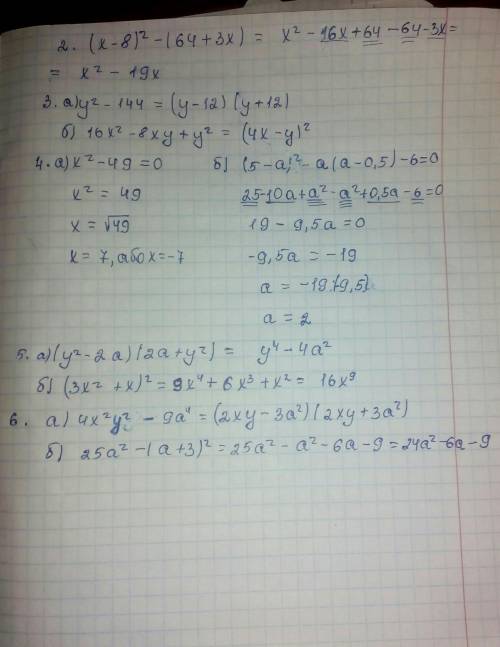 2. (x-8)² -(64+3x) = x² - 16x+64 -64-3x=
= x² - 19x
3. а) y² - 144 = (y-12) (y+12)
б) 16x² -8xy + y² = (4x-y)²
4. а) x² - 49 = 0
x² = 49
x = √49
x = 7, або x = -7
б) (5-a)² - a(a-0,5) -6=0
25-10a+a² - a² +0,5a - 6=0
19 - 9,5a = 0
-9,5a = -19
a = -19:(-9,5)
a = 2
5. а) (y² - 2a) (2a+y²) = y⁴ - 4a²
б) (3x² + x)² = 9x⁴ + 6x³ + x² = 16x⁹
6. а) 4x²y² - 9a⁴ = (2xy - 3a²) (2xy + 3a²)
б) 25a² -(a+3)² = 25a² - a² -6a - 9 = 24a² -6a - 9